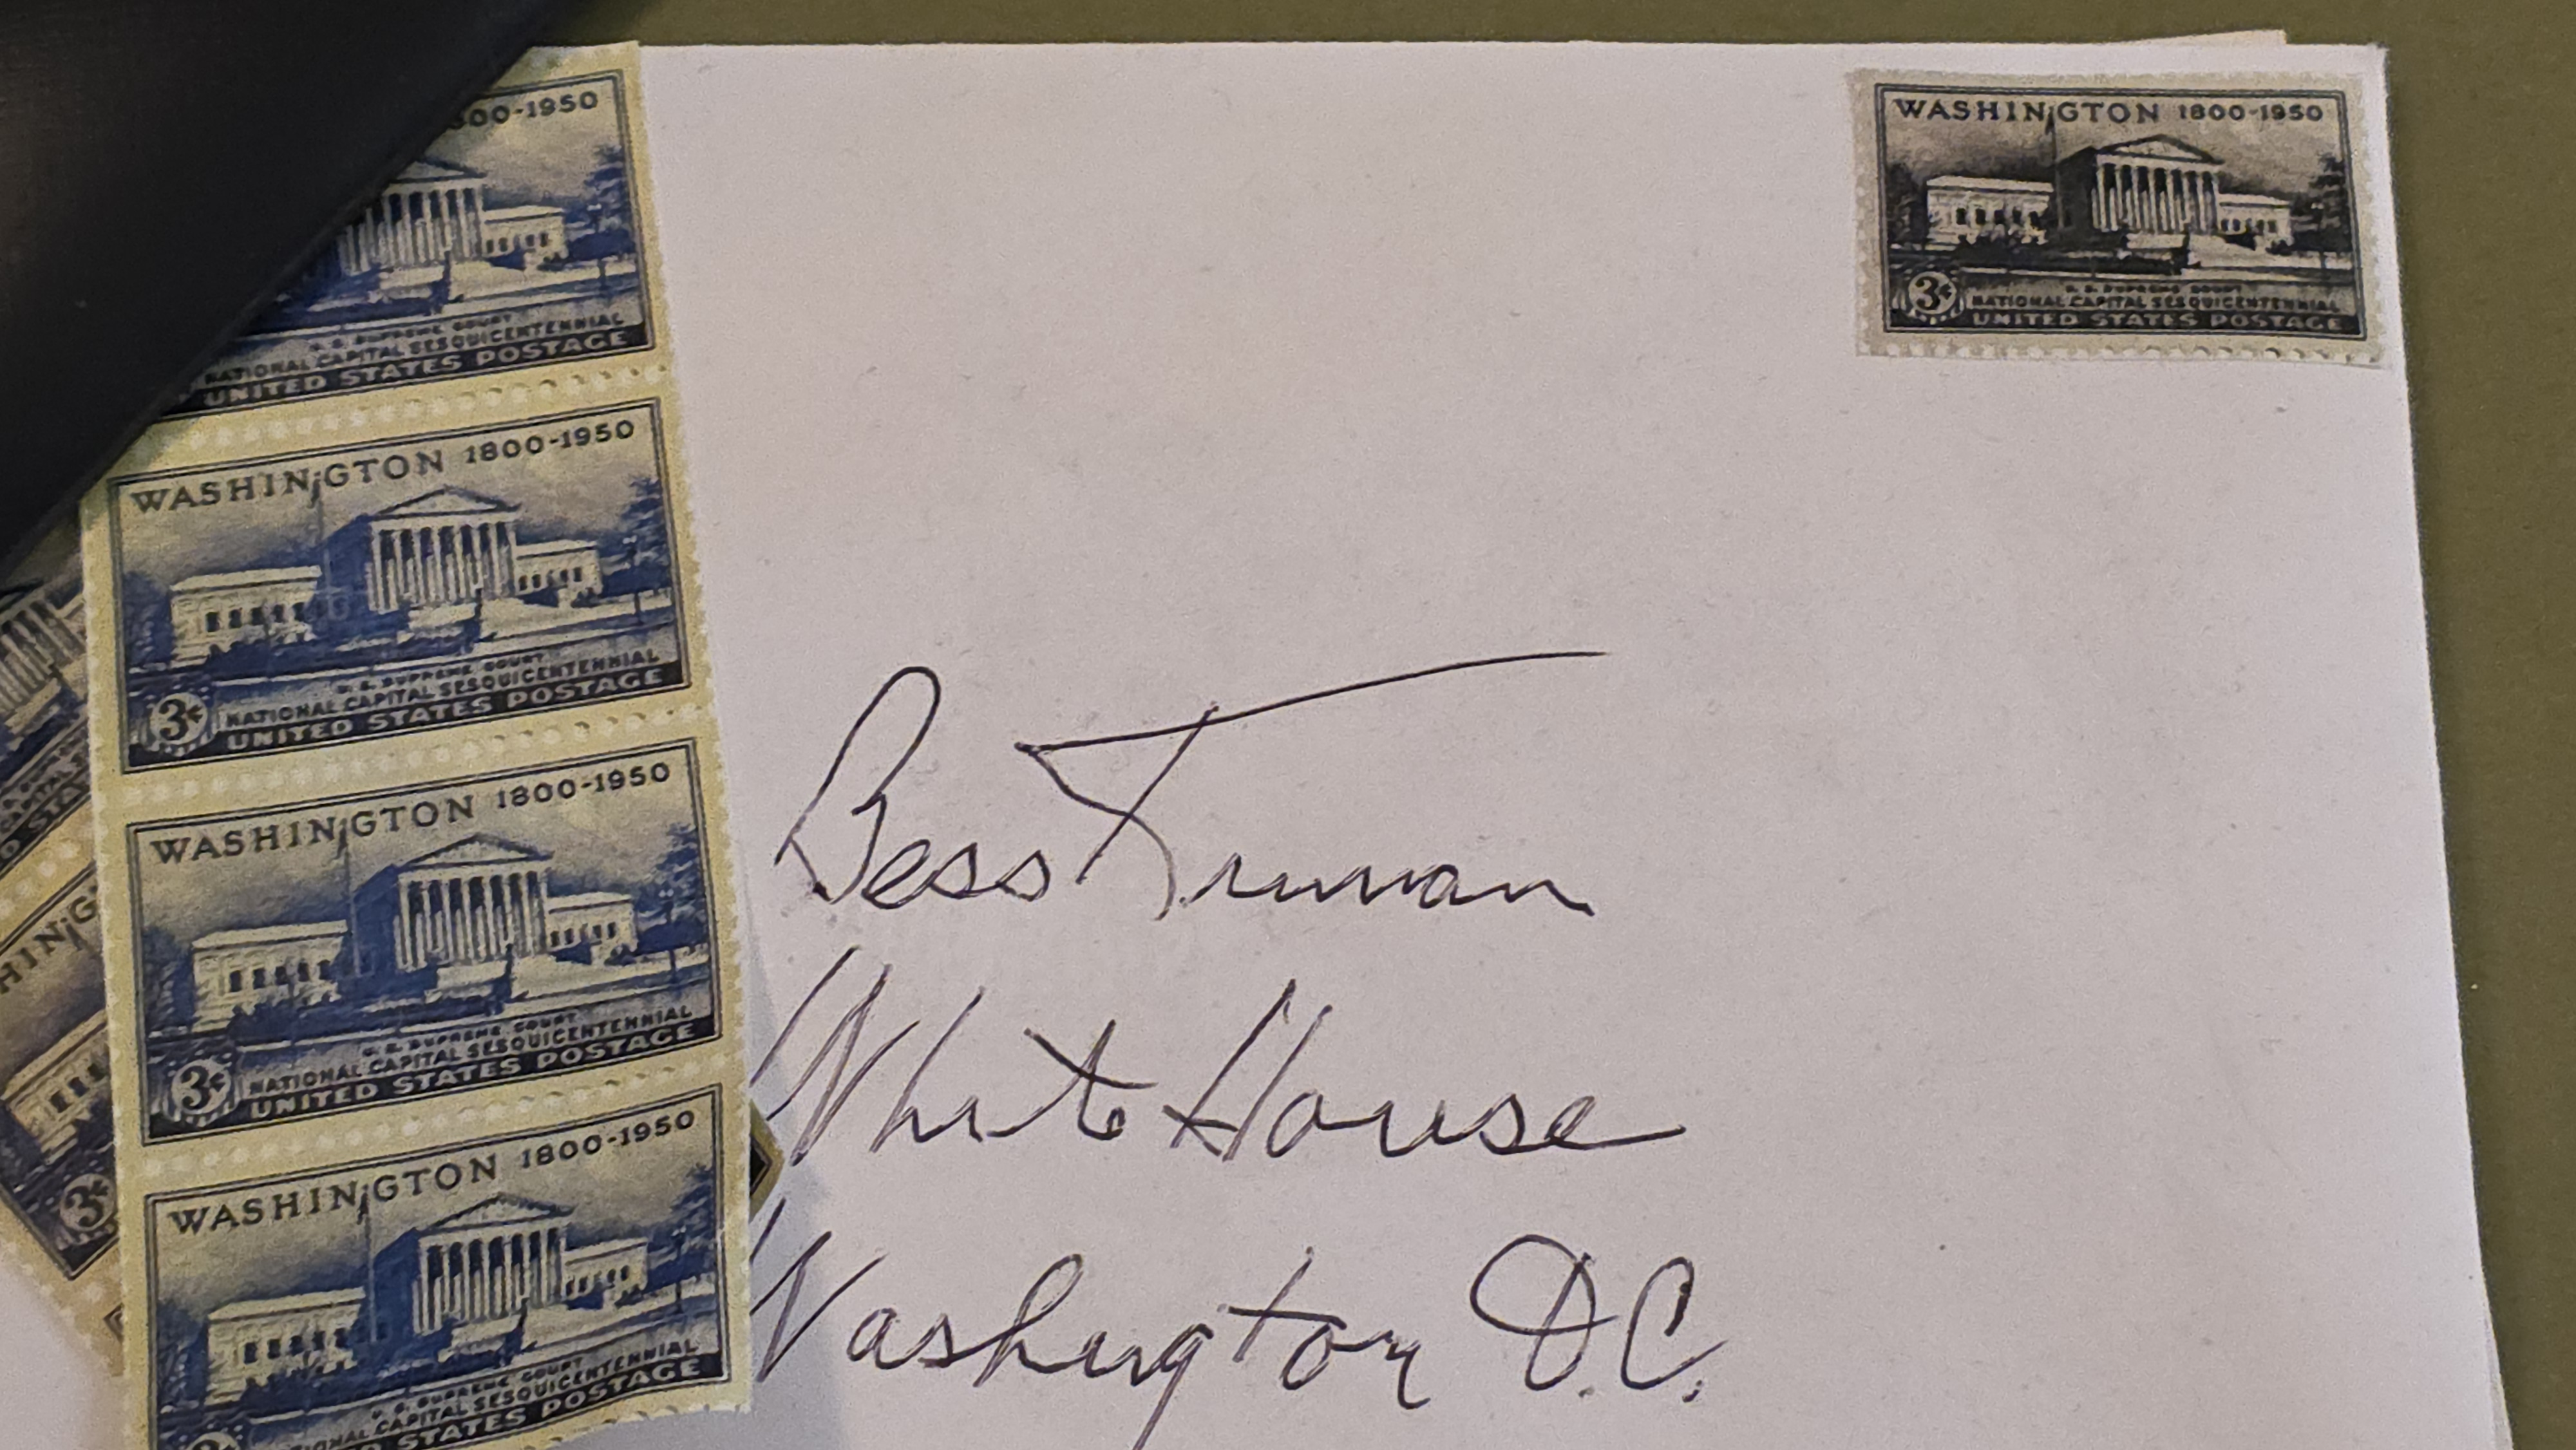 800-1950
U. S. SUPREME COURT
NATIONAL CAPITAL SESQUICENTENNIAL
UNITED STATES POSTAGE
WASHINGTON 1800-1950
U. S. SUPREME COURT
3¢ NATIONAL CAPITAL SESQUICENTENNIAL
UNITED STATES POSTAGE
WASHINGTON 1800-1950
U. S. SUPREME COURT
3¢ NATIONAL CAPITAL SESQUICENTENNIAL
UNITED STATES POSTAGE
WASHINGTON 1800-1950
U. S. SUPREME COURT
IONAL CAPITAL SESQUICENTENNIAL
STATES POSTAGE
HING
3¢
WASHINGTON 1800-1950
U. S. SUPREME COURT
3¢ NATIONAL CAPITAL SESQUICENTENNIAL
UNITED STATES POSTAGE
Bess Truman
White House
Washington D.C.